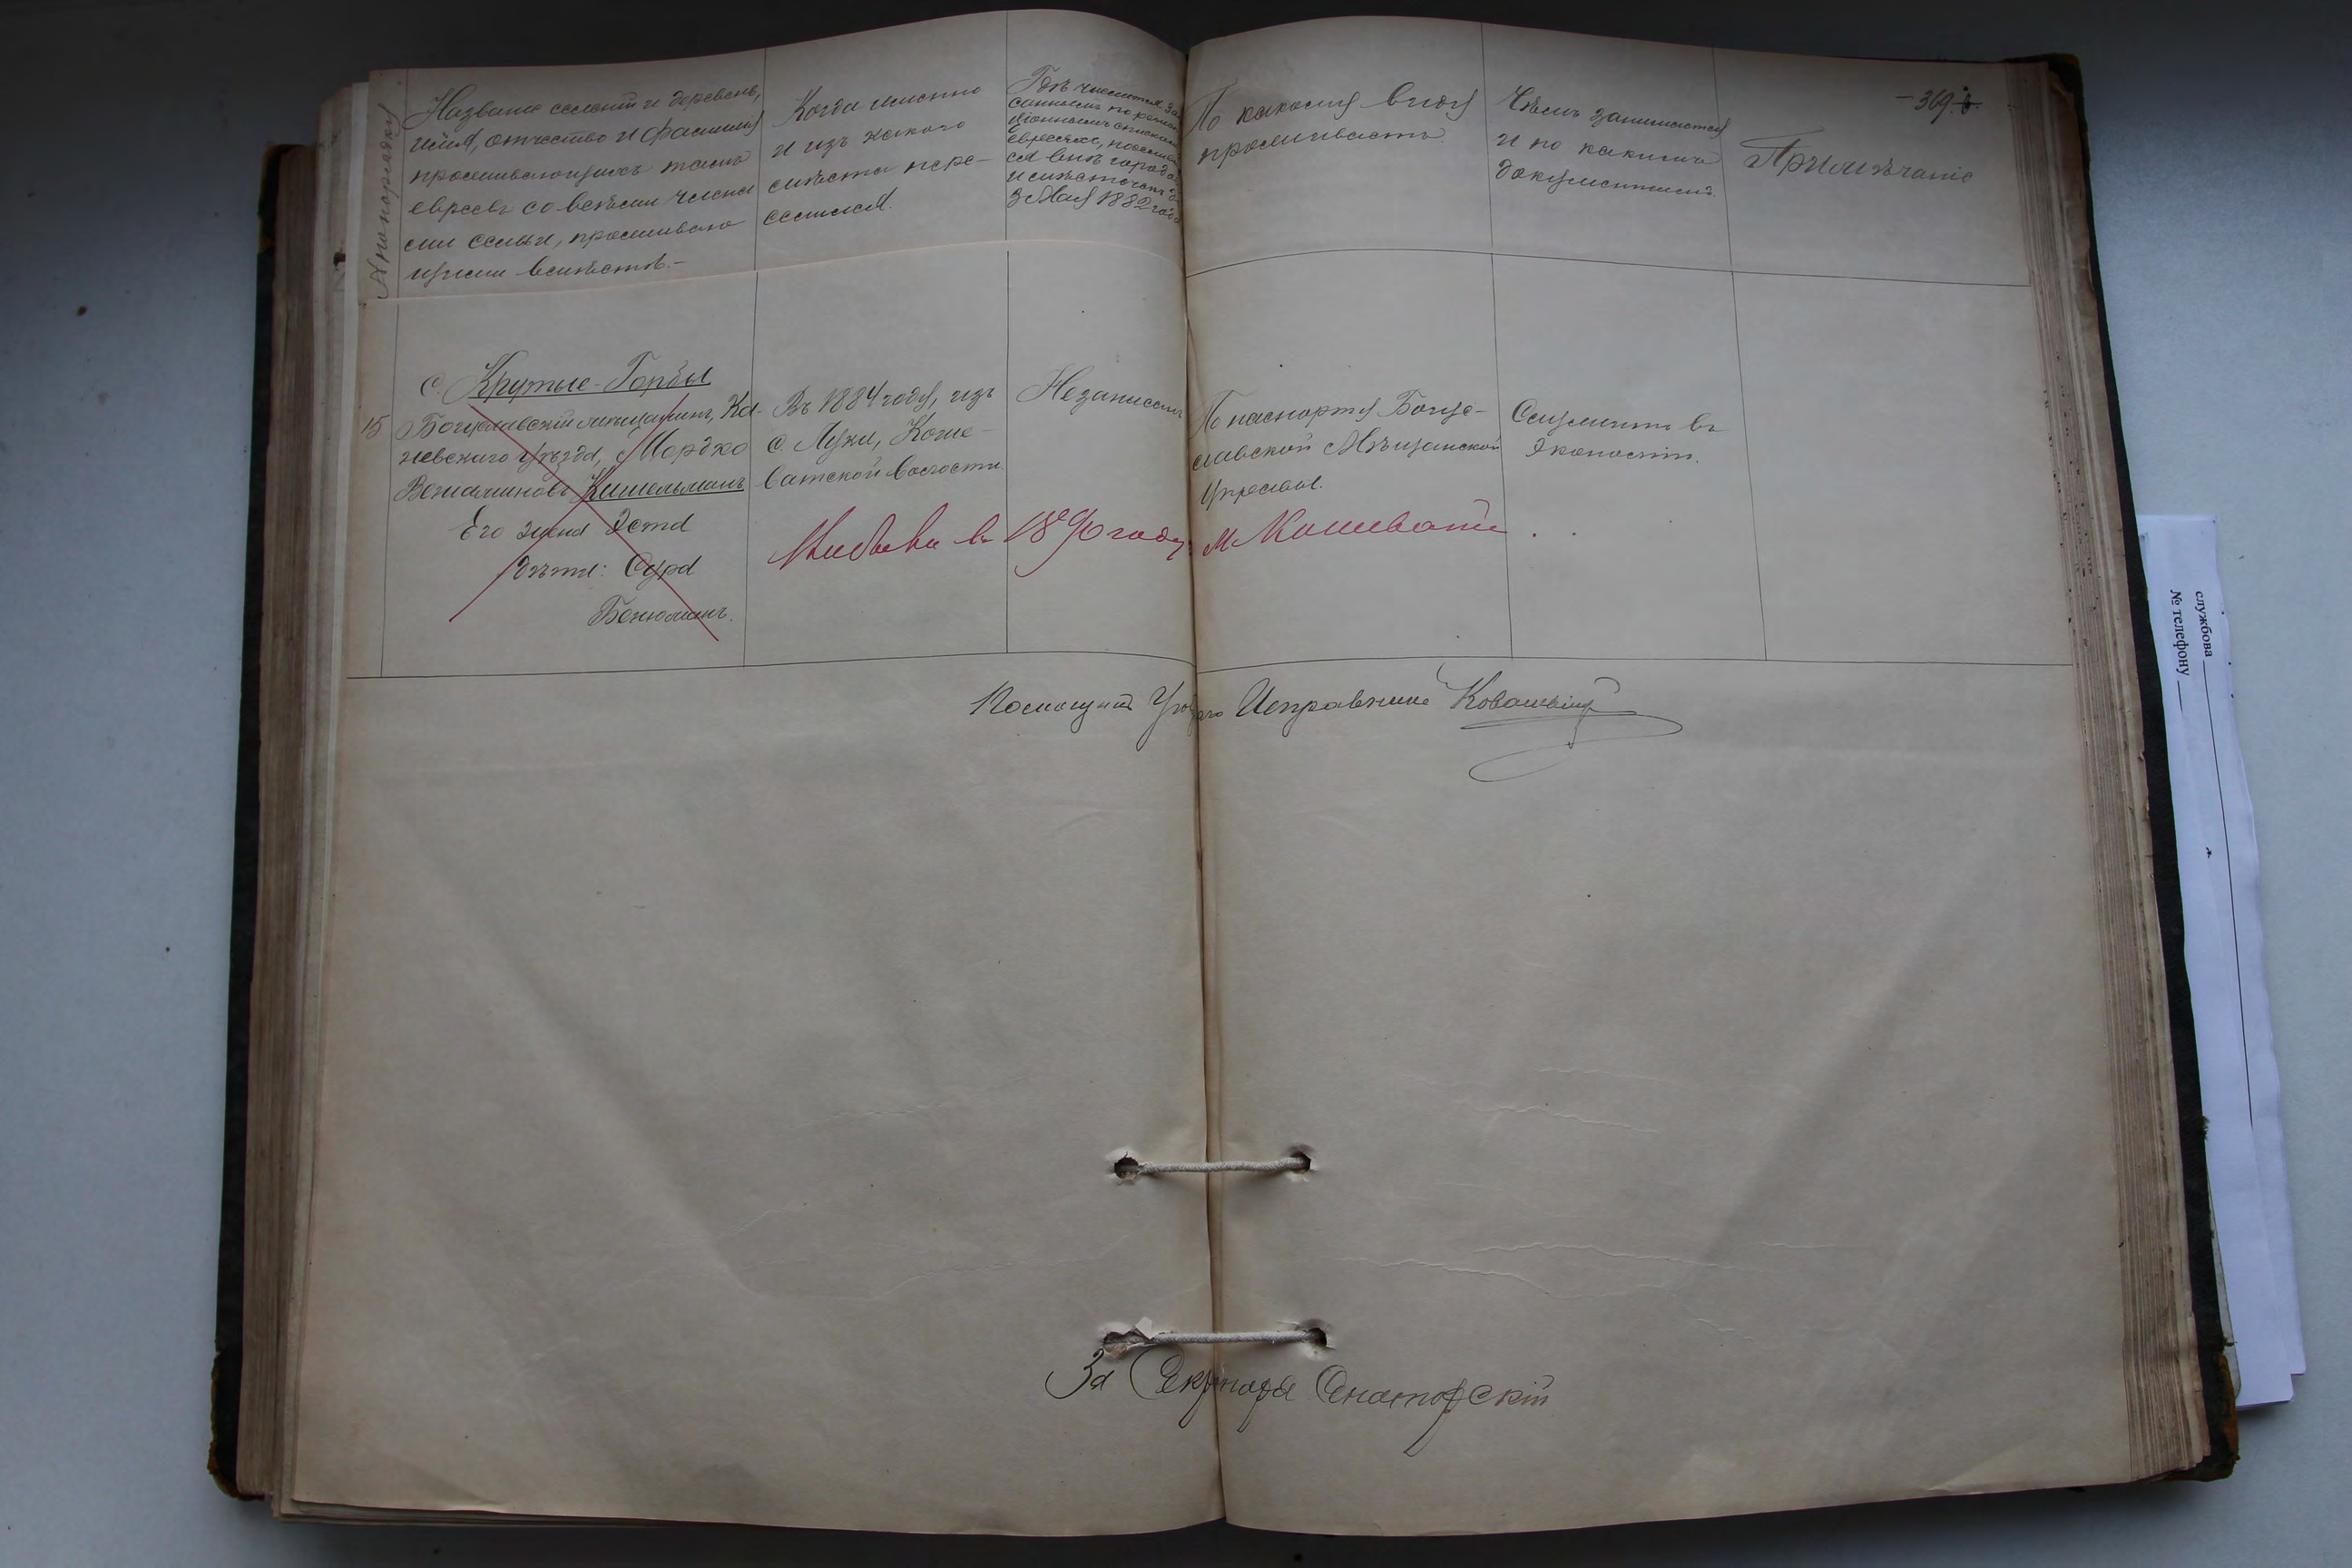 № по порядку
Названіе селеній и деревень,
имя, отчество и фамилія
проживающихъ тамъ
евреевъ со всѣми члена
ми семьи, проживаю
щими вмѣстѣ.-
Когда именно
и изъ какого
мѣста пере-
селился.
Гдѣ числится за
писаннымъ по реви
зіоннымъ спискамъ
евреевъ,
ся внѣ городовъ
и мѣстечекъ до
3 Мая 1882 года
По какому виду
проживаетъ
Чѣмъ занимается
и по какимъ
документамъ.
Примѣчаніе
- 369.
с. Крутые-Горбы
15
Богуславскій мѣщанинъ, Ка-
невскаго уѣзда, Мордко
Веніаминовъ Кишельманъ
Его жена Эстя
дѣти: Сура
Бенюминъ.
Въ 1884 году, изъ
с. Луки, Коше-
ватской волости
Незаписанъ
По паспорту Богу-
славской Мѣщанской
Управы.
Служитъ въ
Экономіи.
Выбылъ въ 1890 году м Кошеватое
Помощникъ Уѣзднаго Исправника
За Секретаря Сенаторскій
службова
№ телефону